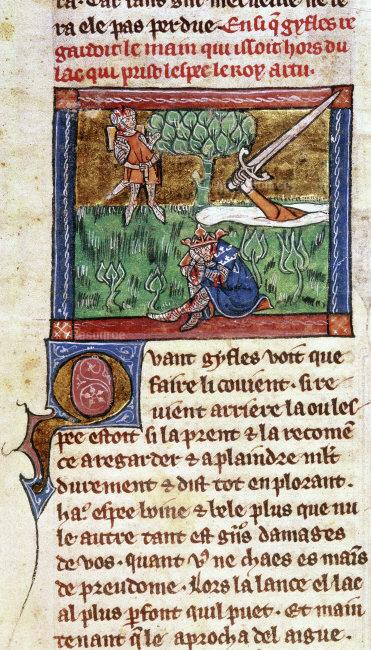 ra ele pas perdue. Ensi q̃ gyfles re
gardoit le main qui issoit hors du
lac qui prist lespee le roy artu.
Quant gyfles voit que
faire li couient. si re
uient arriere la ou les
pee estoit si la prent & la recom̃e
ce a regarder & a plaindre ml't
durement & dist tot en plorant.
ha. espee boine & bele plus que nu
le autre tant est gñs damages
de vos. quant vͦ ne chaes es mains
de preudome. Lors la lance el lac
al plus ꝑfont quil puet. Et main
tenant q̃le aprocha del aigue.